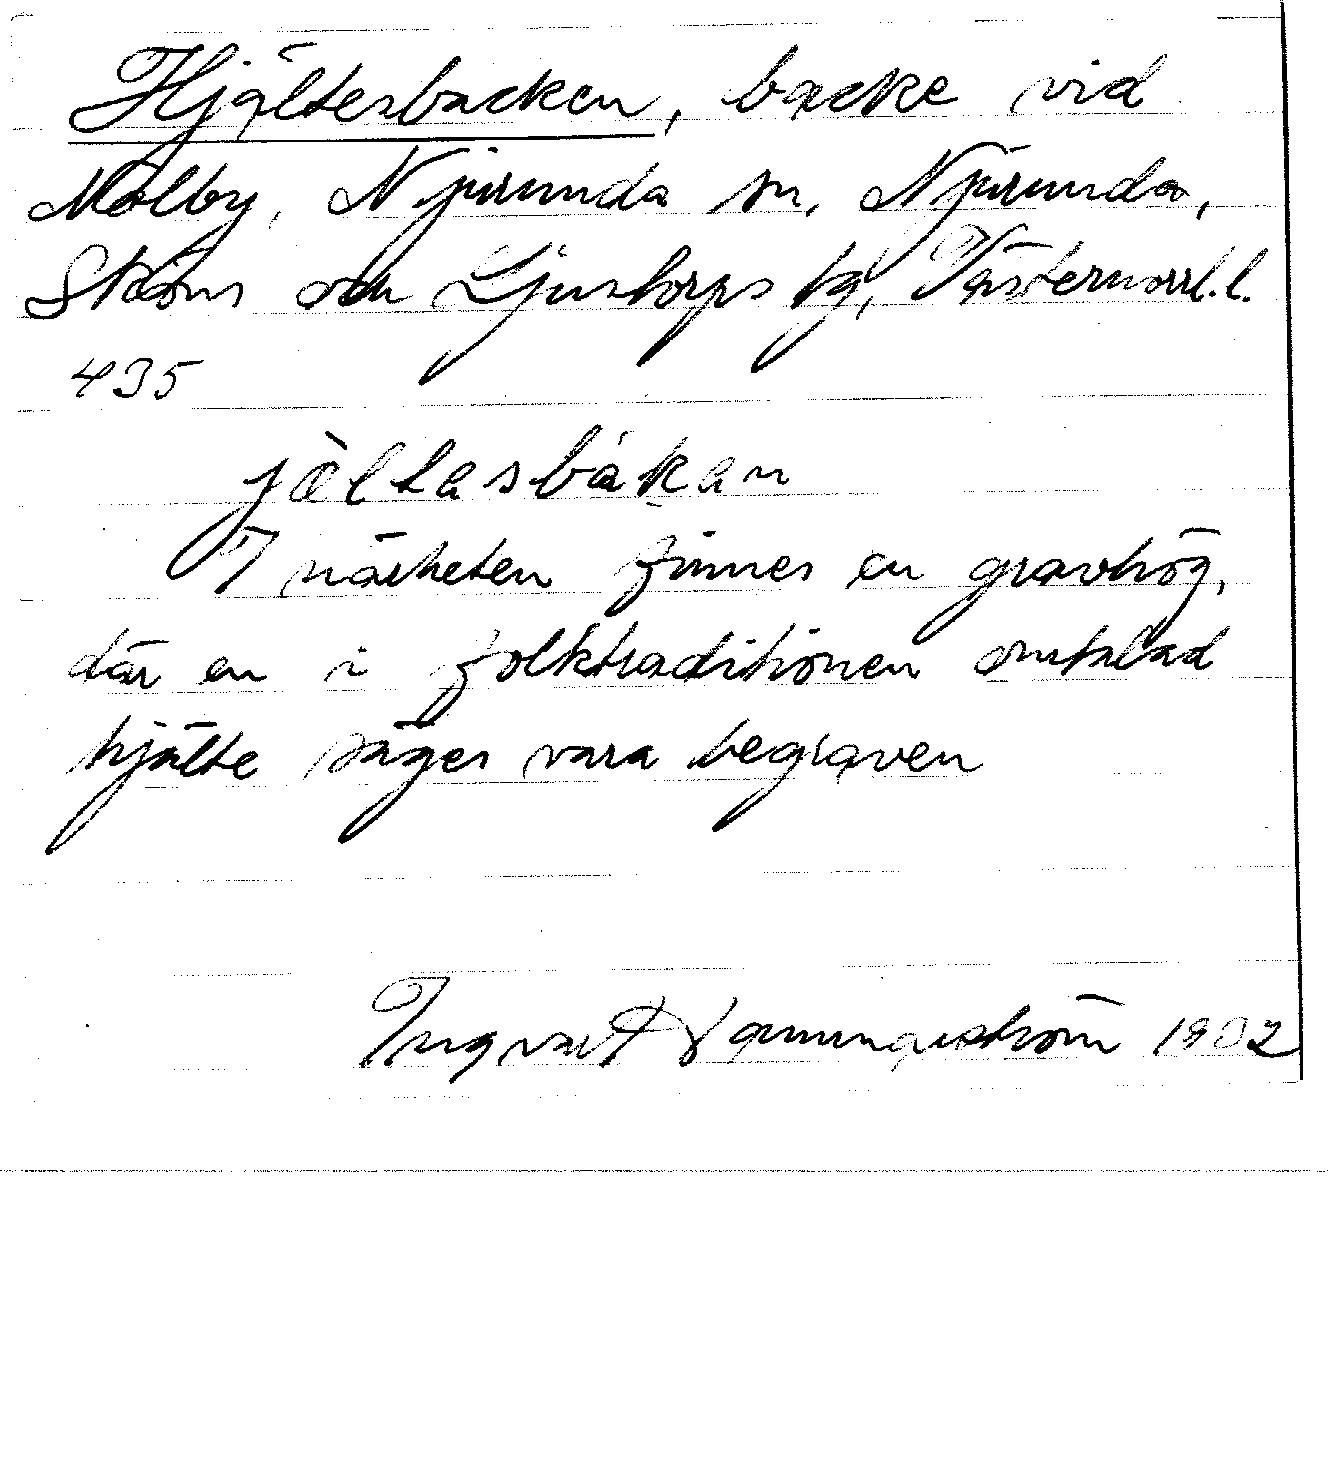 Hjältesbacken, backe vid
Målby, Njurunda sn, Njurunda,
Sköns och Ljustorps tg, Västernorrl.l.
435
jὰltasbákan
I närheten finnes en gravhög,
där en i folktraditionen omtalad
hjälte säges vara begraven
Ingvar 1932